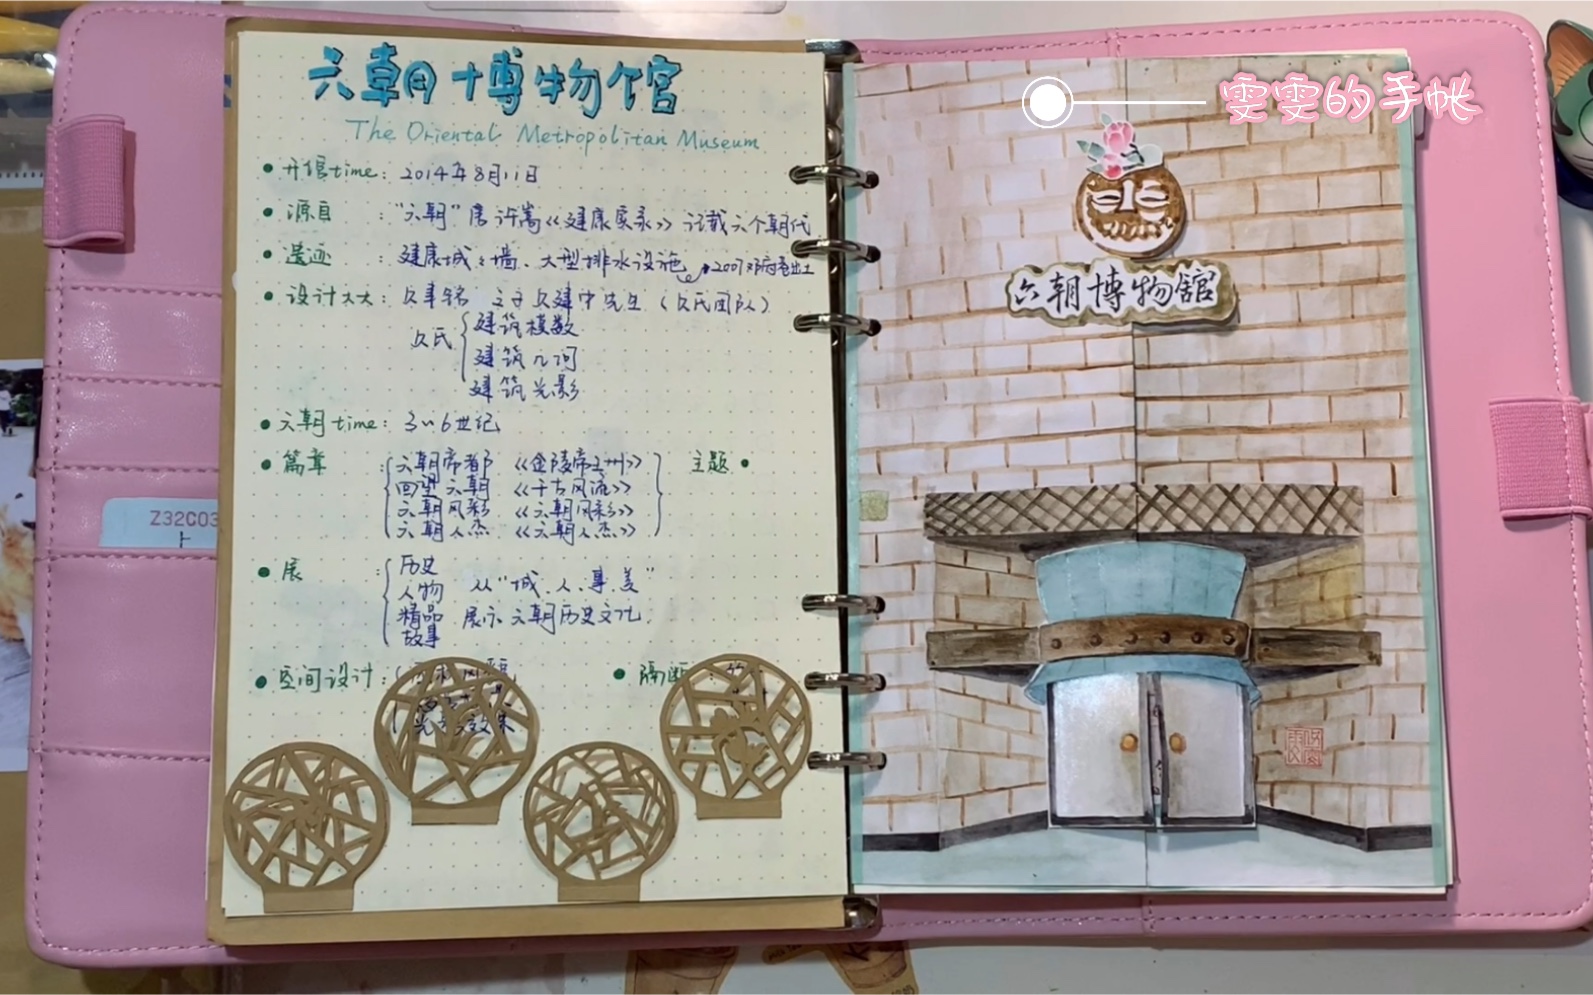 六朝博物馆
The Oriental Metropolitan Museum
雯雯的手帐
• 开馆time: 2014年8月11日
• 源自 : "六朝" 唐 许嵩《建康实录》记载六个朝代
• 遗迹 : 建康城墙、大型排水设施 2007邓府巷出土
• 设计大大: 贝聿铭 之子 贝建中先生 (贝氏团队)
贝氏 { 建筑模数
建筑几何
建筑光影
• 六朝time: 3~6世纪
• 篇章 : { 六朝帝都 《金陵帝王州》 } 主题 •
回望六朝 《千古风流》
六朝风彩 《六朝风彩》
六朝人杰 《六朝人杰》
• 展 : { 历史
人物 从"城、人、事、美"
精品 展示 六朝历史文化.
故事
• 空间设计: • 隔断 : 竹
光影效果
Z32C03
六朝博物館